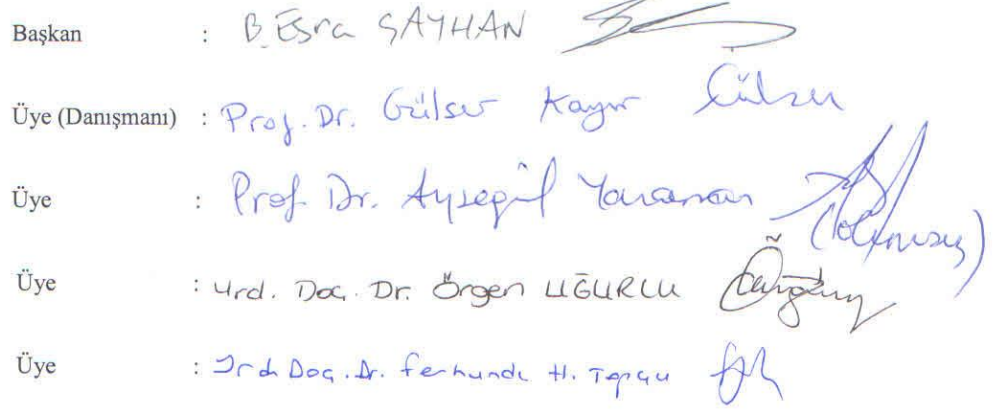 Başkan : B. Esra SAYHAN
Üye (Danışmanı) : Prof. Dr. Gülser Kayır Gülser
Üye : Prof. Dr. Ayşegül Yaraman (olumsuz)
Üye : Yrd. Doç. Dr. Örgen UĞURLU
Üye : Yrd. Doç. Dr. Ferhunde H. Topçu